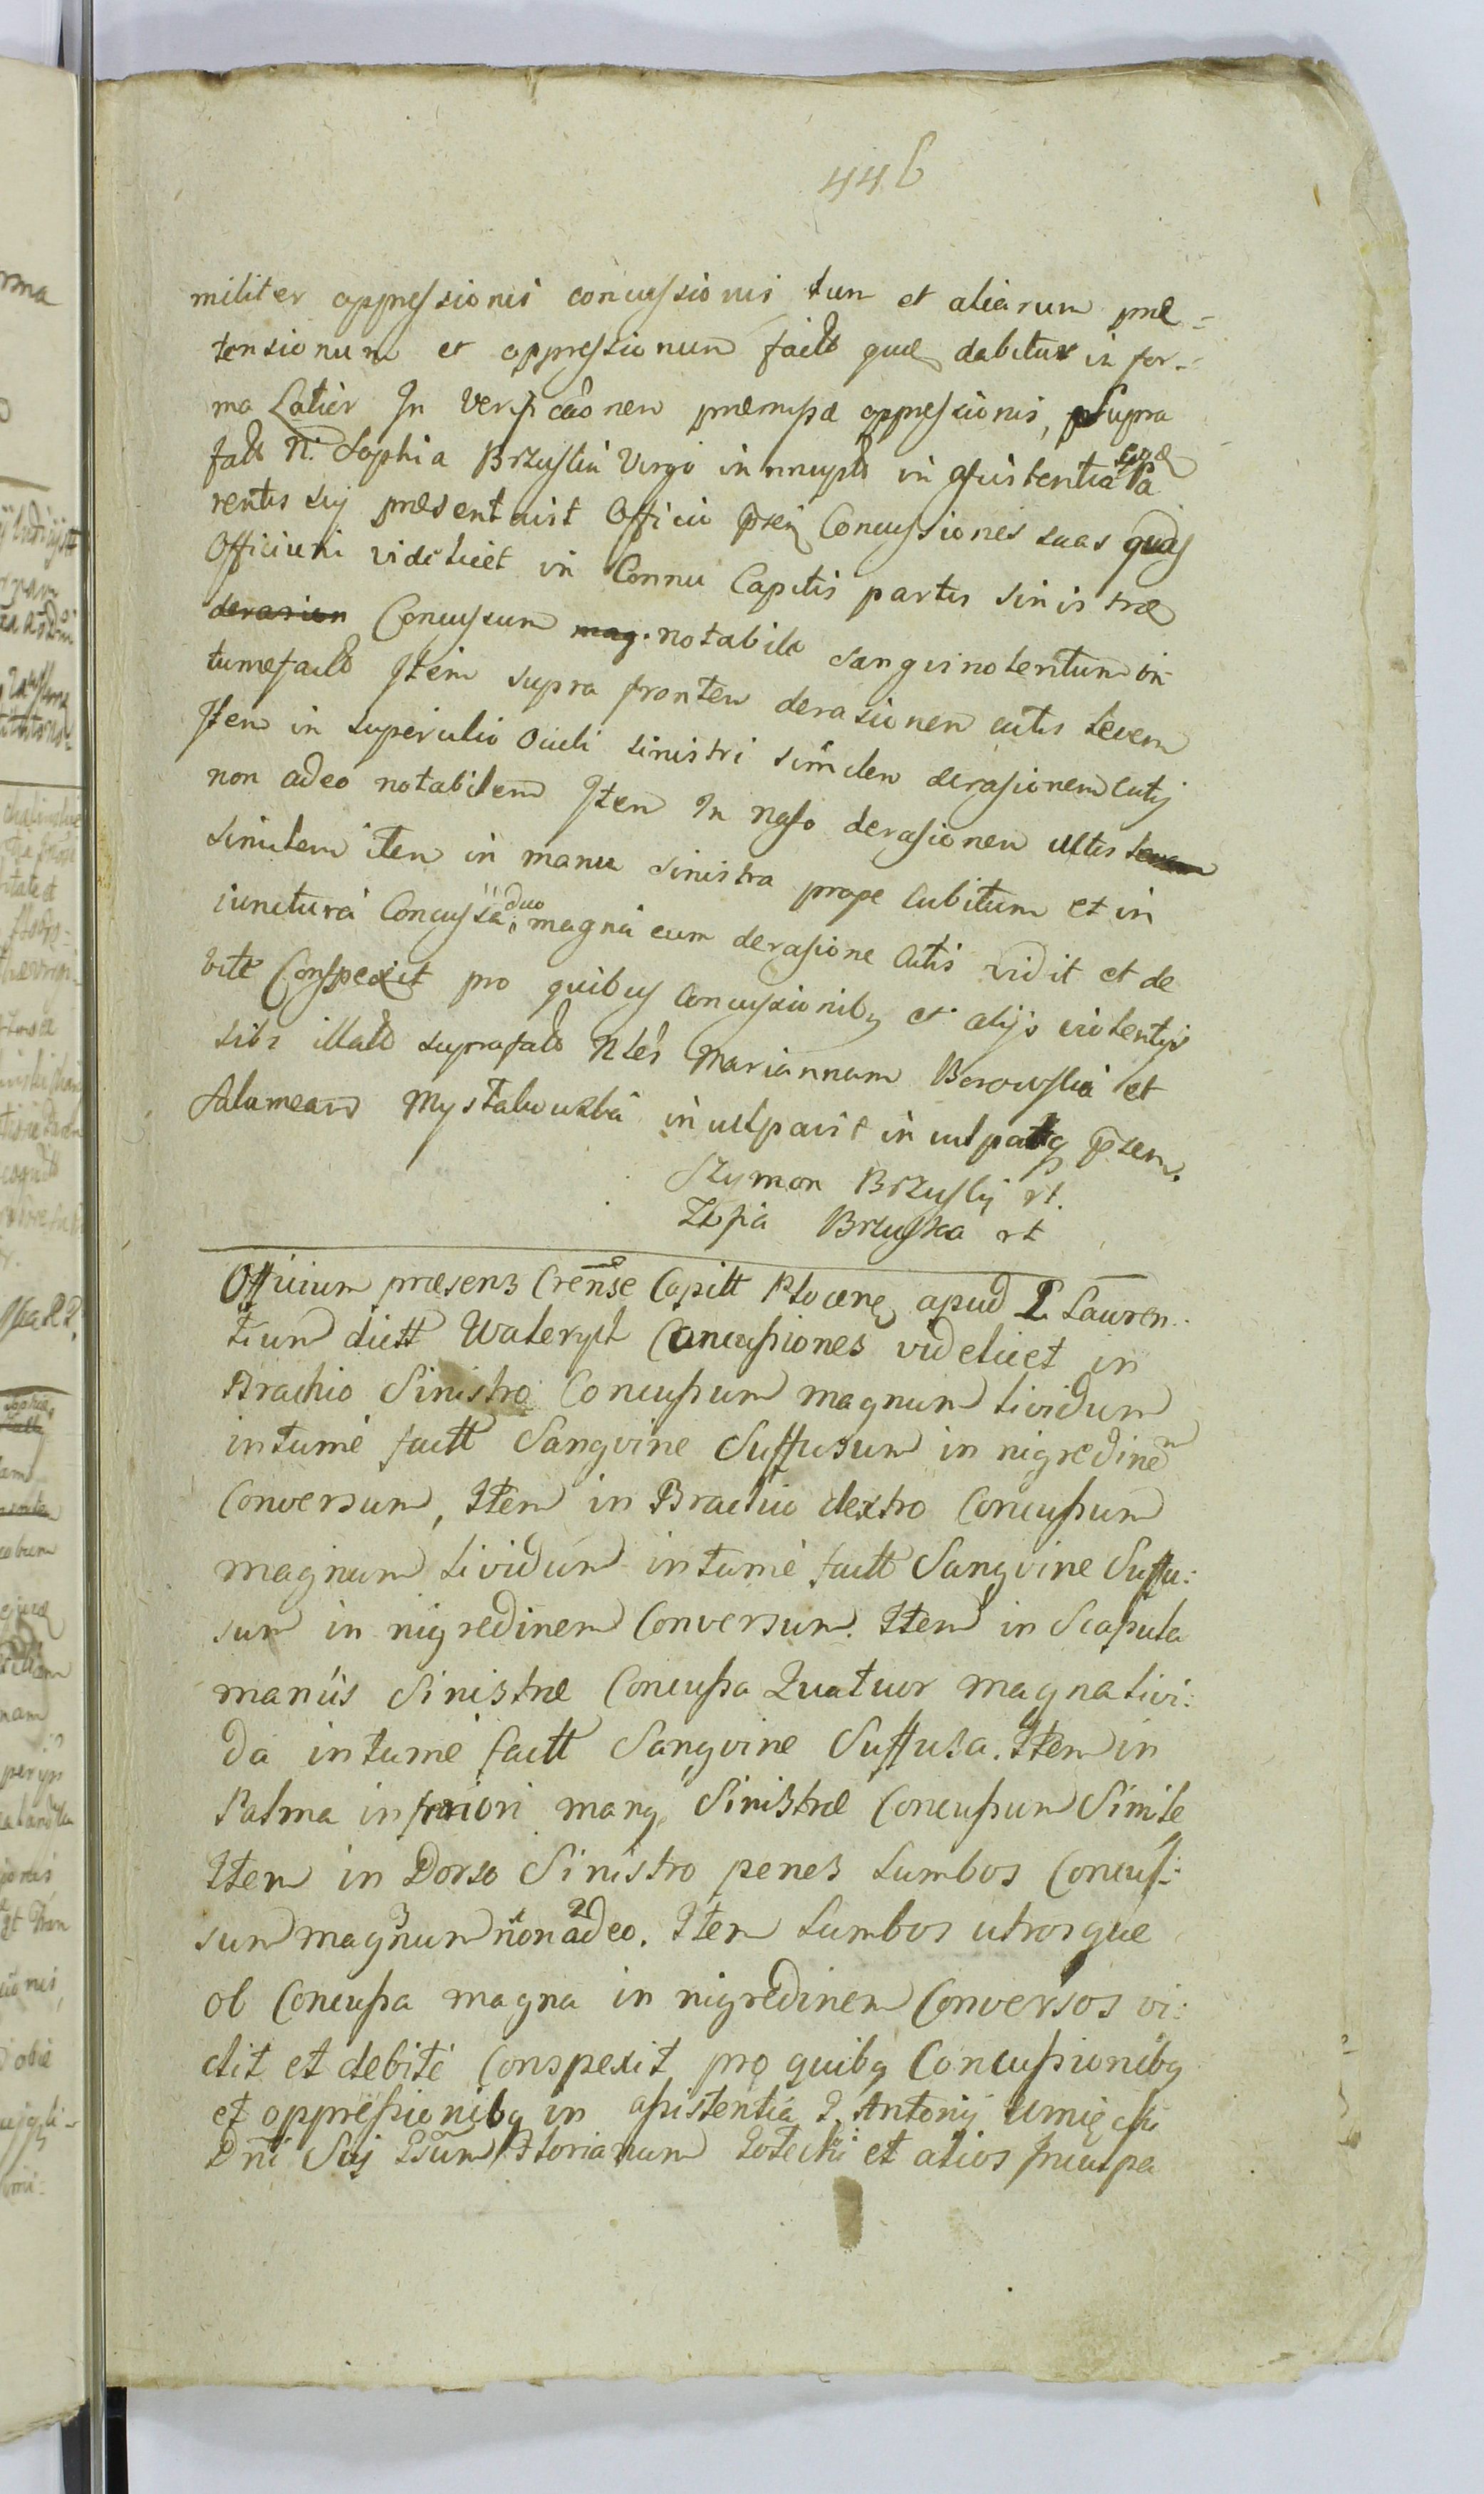 446
militer oppressionis concussionis tum et aliarum præ-
tensionum et oppressionum fact quæ dabitur in for-
ma Latior In Verificaonem præmissæ oppressionis, Supra
fatt N. Sophia Brzuska Virgo innnupta in assistentia Pa
rentis sui præsentavit Officio Concussiones suas quas
Officium videlicet in Cornu Capitis partis sinistræ
Concussum notabile sangvinolentum in
tumefact Item supra frontem derasionem cutis levem
Item in supercilio Oculi sinistri similem derasionem Cutis
non adeo notabilem Item In Naso derasionem cutis
similem item in manu sinistra prope Cubitum et in
iunctura Concussa duo magna cum derasione Cutis vidit et de
bite Conspexit pro quibus Concussionibus et alijs violentijs
sibi illatt suprafatt Nles Mariannam Borowska et
Salomeam Mystakowska inculpavit inculpatq psem.
Szymon Brzuski rt.
Zofia Brzuska rt
Officium præsens Crense Capitt Plocens apud L. Lauren
tium dictt Walerych Concussiones videlicet in
Brachio Sinistro Concussum magnum lividum
intume factt Sangvine Suffusum in nigredinem
Conversum, Item in Brachio dextro Concussum
magnum lividum intume factt Sangvine Suffu:
sum in nigredinem Conversum. Item in Scapula
manus Sinistræ Concussa Quatuor magna livi:
da intume factt Sangvine Suffusa. Item in
Palma inferiori manq Sinistræ Concussum Simile
Item in Dorso Sinistro penes Lumbos Concus:
sum magnum non adeo. Item Lumbos utrosque
ob Concussa magna in nigredinem Conversos vi:
dit et debite Conspexit pro quibq Concussionibq
et oppressionibq in assistentia G. Antonij
Dni Sui Gsum Florianum et alios Inculpa